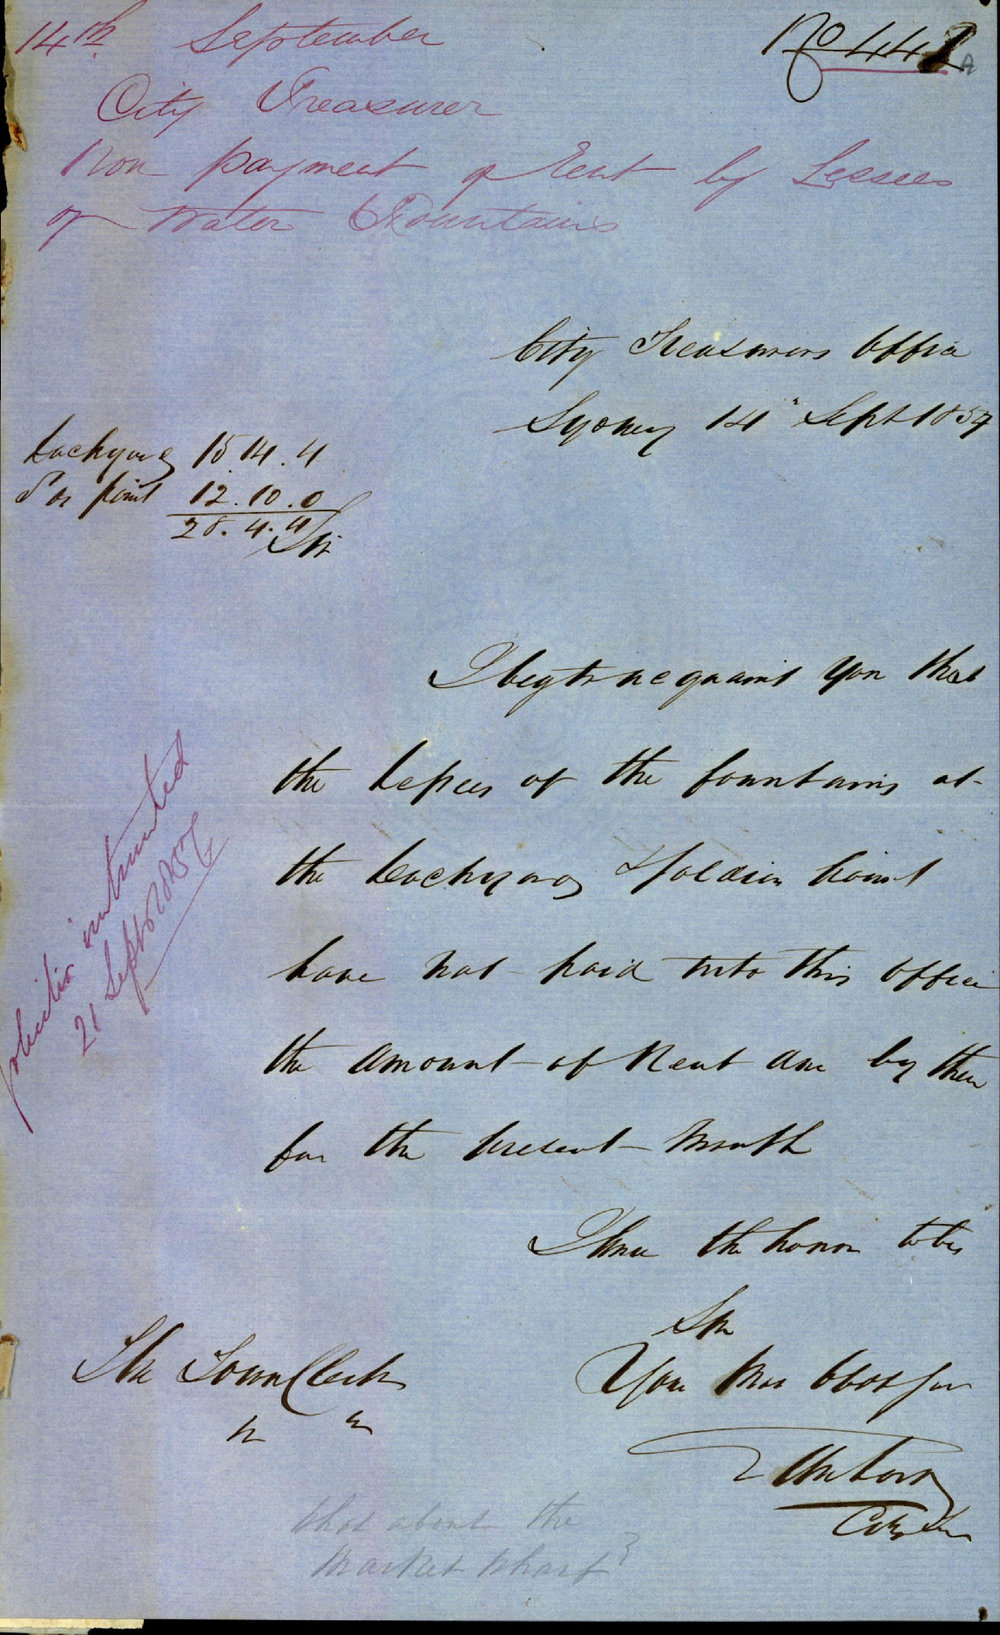 14th September
No 442 A
City Treasurer
Non payment of Rent by Lessees
of Water Fountains
City Treasurers Office
Sydney 14" Sept 1857
15.14.4
point 12.10.0
28.4.4
Sir
I beg to acquaint you that
the Lessees of the fountains at
the & Soldiers point
have not paid into this office
the amount of Rent due by them
for the present Month
I have the honor to be
Sir
Your Mos Obdt Ser
The Town Clerk
City
instructed
21 Septr 1857
What about the
Market Wharf